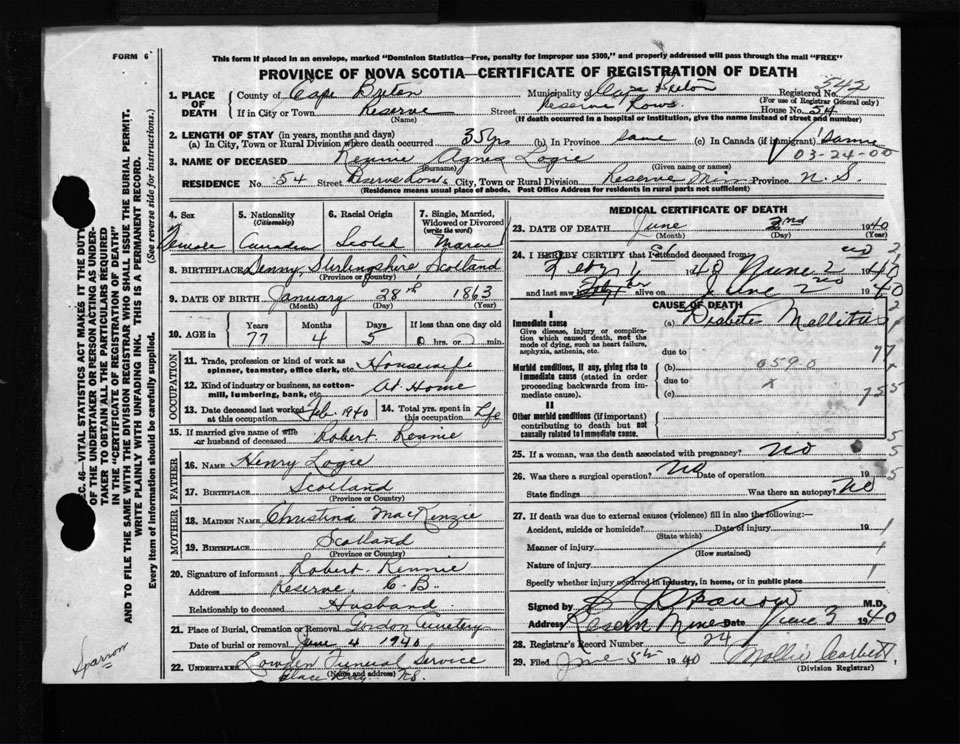 FORM 6
This form if placed in an envelope, marked "Dominion Statistics—Free, penalty for improper use $300," and properly addressed will pass through the mail "FREE"
PROVINCE OF NOVA SCOTIA—CERTIFICATE OF REGISTRATION OF DEATH
1. PLACE OF DEATH
County of Cape Breton Municipality of Cape Breton Registered No. 542
(For use of Registrar General only)
If in City or Town Reserve Street Reserve Rows House No. 54
(Name) (If death occurred in a hospital or institution, give the name instead of street and number)
2. LENGTH OF STAY (in years, months and days)
(a) In City, Town or Rural Division where death occurred 35 yrs (b) In Province same (c) In Canada (if immigrant) same
03-24-00
3. NAME OF DECEASED Rennie Agnes Logie
(Surname) (Given name or names)
RESIDENCE No. 54 Street Reserve Rows City, Town or Rural Division Reserve Mines Province N.S
(Residence means usual place of abode. Post Office Address for residents in rural parts not sufficient)
4. Sex Female
5. Nationality (Citizenship) Canadian
6. Racial Origin Scotch
7. Single, Married, Widowed or Divorced (write the word) Married
8. BIRTHPLACE Denny, Stirlingshire Scotland
(Province or Country)
9. DATE OF BIRTH January 28th 1863
(Month) (Day) (Year)
10. AGE in Years 77 Months 4 Days 5 If less than one day old 0 hrs. or min.
OCCUPATION
11. Trade, profession or kind of work as spinner, teamster, office clerk, etc. Housewife
12. Kind of industry or business, as cotton-mill, lumbering, bank, etc. At Home
13. Date deceased last worked at this occupation Feb. 1940 14. Total yrs. spent in this occupation Life
15. If married give name of wife or husband of deceased Robert Rennie
FATHER
16. NAME Henry Logie
17. BIRTHPLACE Scotland
(Province or Country)
MOTHER
18. MAIDEN NAME Christina MacKinzie
19. BIRTHPLACE Scotland
(Province or Country)
20. Signature of informant Robert Rennie
Address Reserve, C.B.
Relationship to deceased Husband
21. Place of Burial, Cremation or Removal Gordon Cemetery
Date of burial or removal June 4 1940
22. UNDERTAKER Lowden Funeral Service
(Name and address)
Glace Bay, N.S.
MEDICAL CERTIFICATE OF DEATH
23. DATE OF DEATH June 2nd 1940
(Month) (Day) (Year)
24. I HEREBY CERTIFY that I attended deceased from
1940 June 2 1940
and last saw her alive on June 2nd 1940
CAUSE OF DEATH
I
Immediate cause
Give disease, injury or complication which caused death, not the mode of dying, such as heart failure, asphyxia, asthenia, etc.
(a) Diabetes Mellitus
due to
Morbid conditions, if any, giving rise to immediate cause (stated in order proceeding backwards from immediate cause)
(b) 0590
due to
(c)
II
Other morbid conditions (if important) contributing to death but not causally related to immediate cause.
25. If a woman, was the death associated with pregnancy? No
26. Was there a surgical operation? No Date of operation 19
State findings Was there an autopsy? No
27. If death was due to external causes (violence) fill in also the following:—
Accident, suicide or homicide? Date of injury 19
(State which)
Manner of injury
(How sustained)
Nature of injury
Specify whether injury occurred in industry, in home, or in public place
Signed by M.D.
Address Reserve Mines Date June 3 1940
28. Registrar's Record Number 24
29. Filed June 5th 1940 Mollie Corbett
(Division Registrar)
SEC. 46—VITAL STATISTICS ACT MAKES IT THE DUTY
OF THE UNDERTAKER OR PERSON ACTING AS UNDER-
TAKER TO OBTAIN ALL THE PARTICULARS REQUIRED
IN THE "CERTIFICATE OF REGISTRATION OF DEATH"
AND TO FILE THE SAME WITH THE DIVISION REGISTRAR WHO SHALL ISSUE THE BURIAL PERMIT.
WRITE PLAINLY WITH UNFADING INK. THIS IS A PERMANENT RECORD.
Every item of information should be carefully supplied. (See reverse side for instructions.)
Sparrow